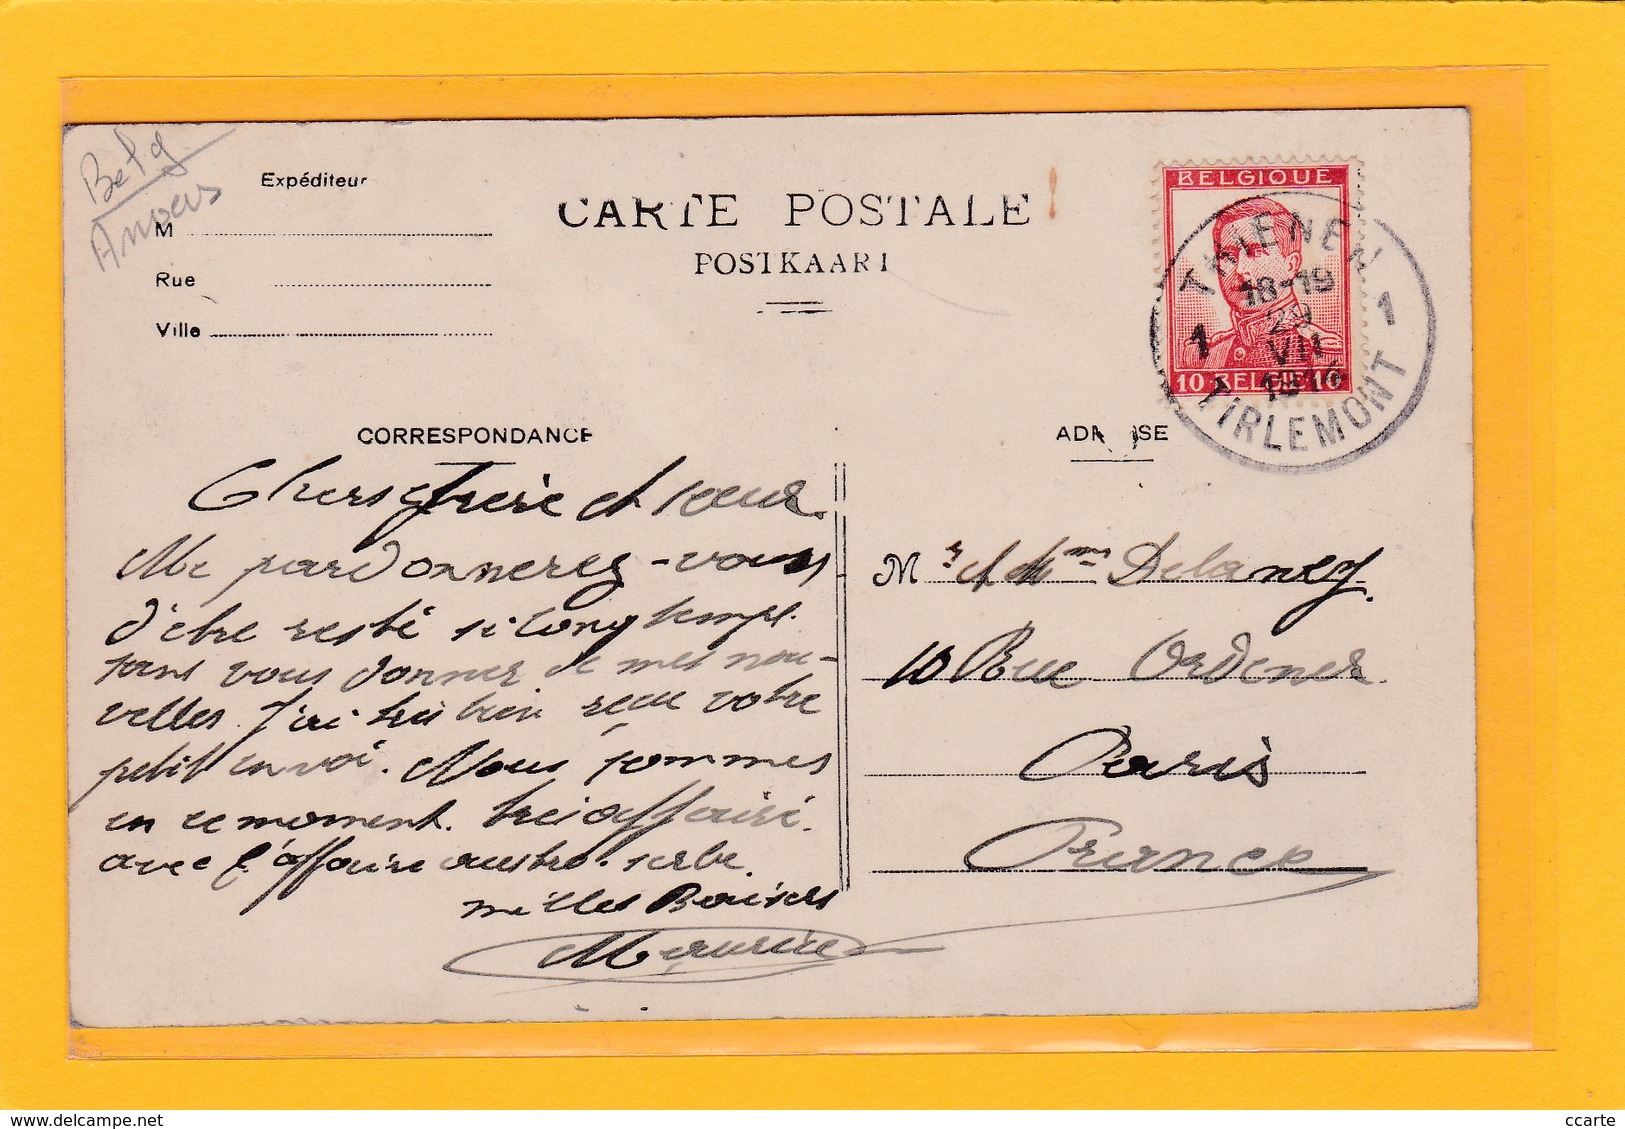 Belg
Anvers
Expéditeur
M
Rue
Ville
CARTE POSTALE
POSTKAART
BELGIQUE
10 BELGIE 10
THIENEN
1 18-19 1
29
VII
1914
TIRLEMONT
CORRESPONDANCE
Chers frère et sœur.
Me pardonnerez-vous
d'être resté si longtemps
sans vous donner de mes nou-
velles. J'ai très bien reçu votre
petit envoi. Nous sommes
en ce moment très affairé.
avec l'affaire austro-serbe.
milles Baisers
Maurice
ADRESSE
Mr et Mme Delaney.
10 Rue Ordener
Paris
France
delcampe.net
ccarte